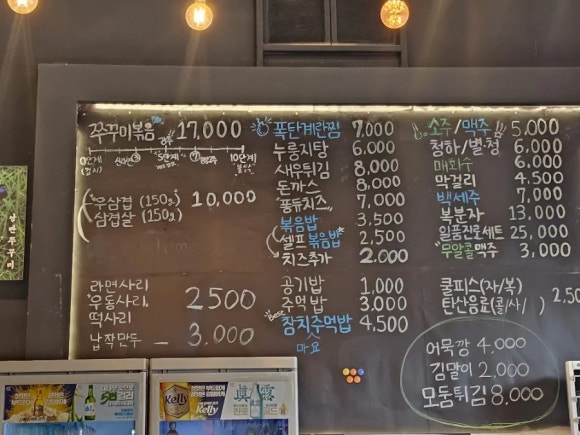 쭈꾸미볶음 17,000
0단계
10단계
우삼겹 (150g) 10,000
삼겹살 (150g)
라면사리
우동사리 2500
떡사리
납작만두 - 3.000
폭탄계란찜 7,000
누룽지탕 6,000
새우튀김 8,000
돈까스 8,000
"퐁듀치즈" 7,000
볶음밥 3,500
셀프볶음밥* 2,500
치즈추가 2.000
공기밥 1,000
주먹밥 3,000
Best 참치주먹밥 4,500
마요
소주/맥주 5,000
청하/별청 6,000
매화수 6,000
막걸리 4,500
백세주 7,000
복분자 13,000
일품진로세트 25,000
무알콜맥주 3,000
쿨피스(자/복)
탄산음료(콜/사/ ) 2,50
어묵깡 4.000
김말이 2.000
모둠튀김 8,000
Kelly
Kelly
眞露